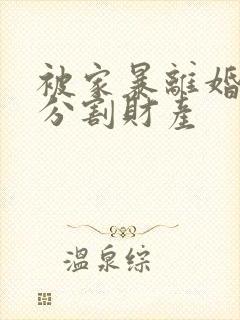 被家暴離婚
分割財產
溫泉綜